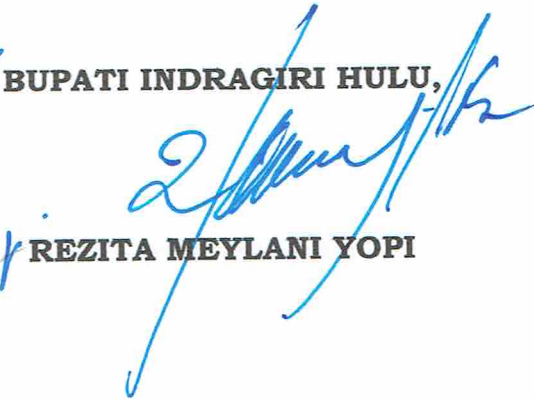 BUPATI INDRAGIRI HULU,
REZITA MEYLANI YOPI